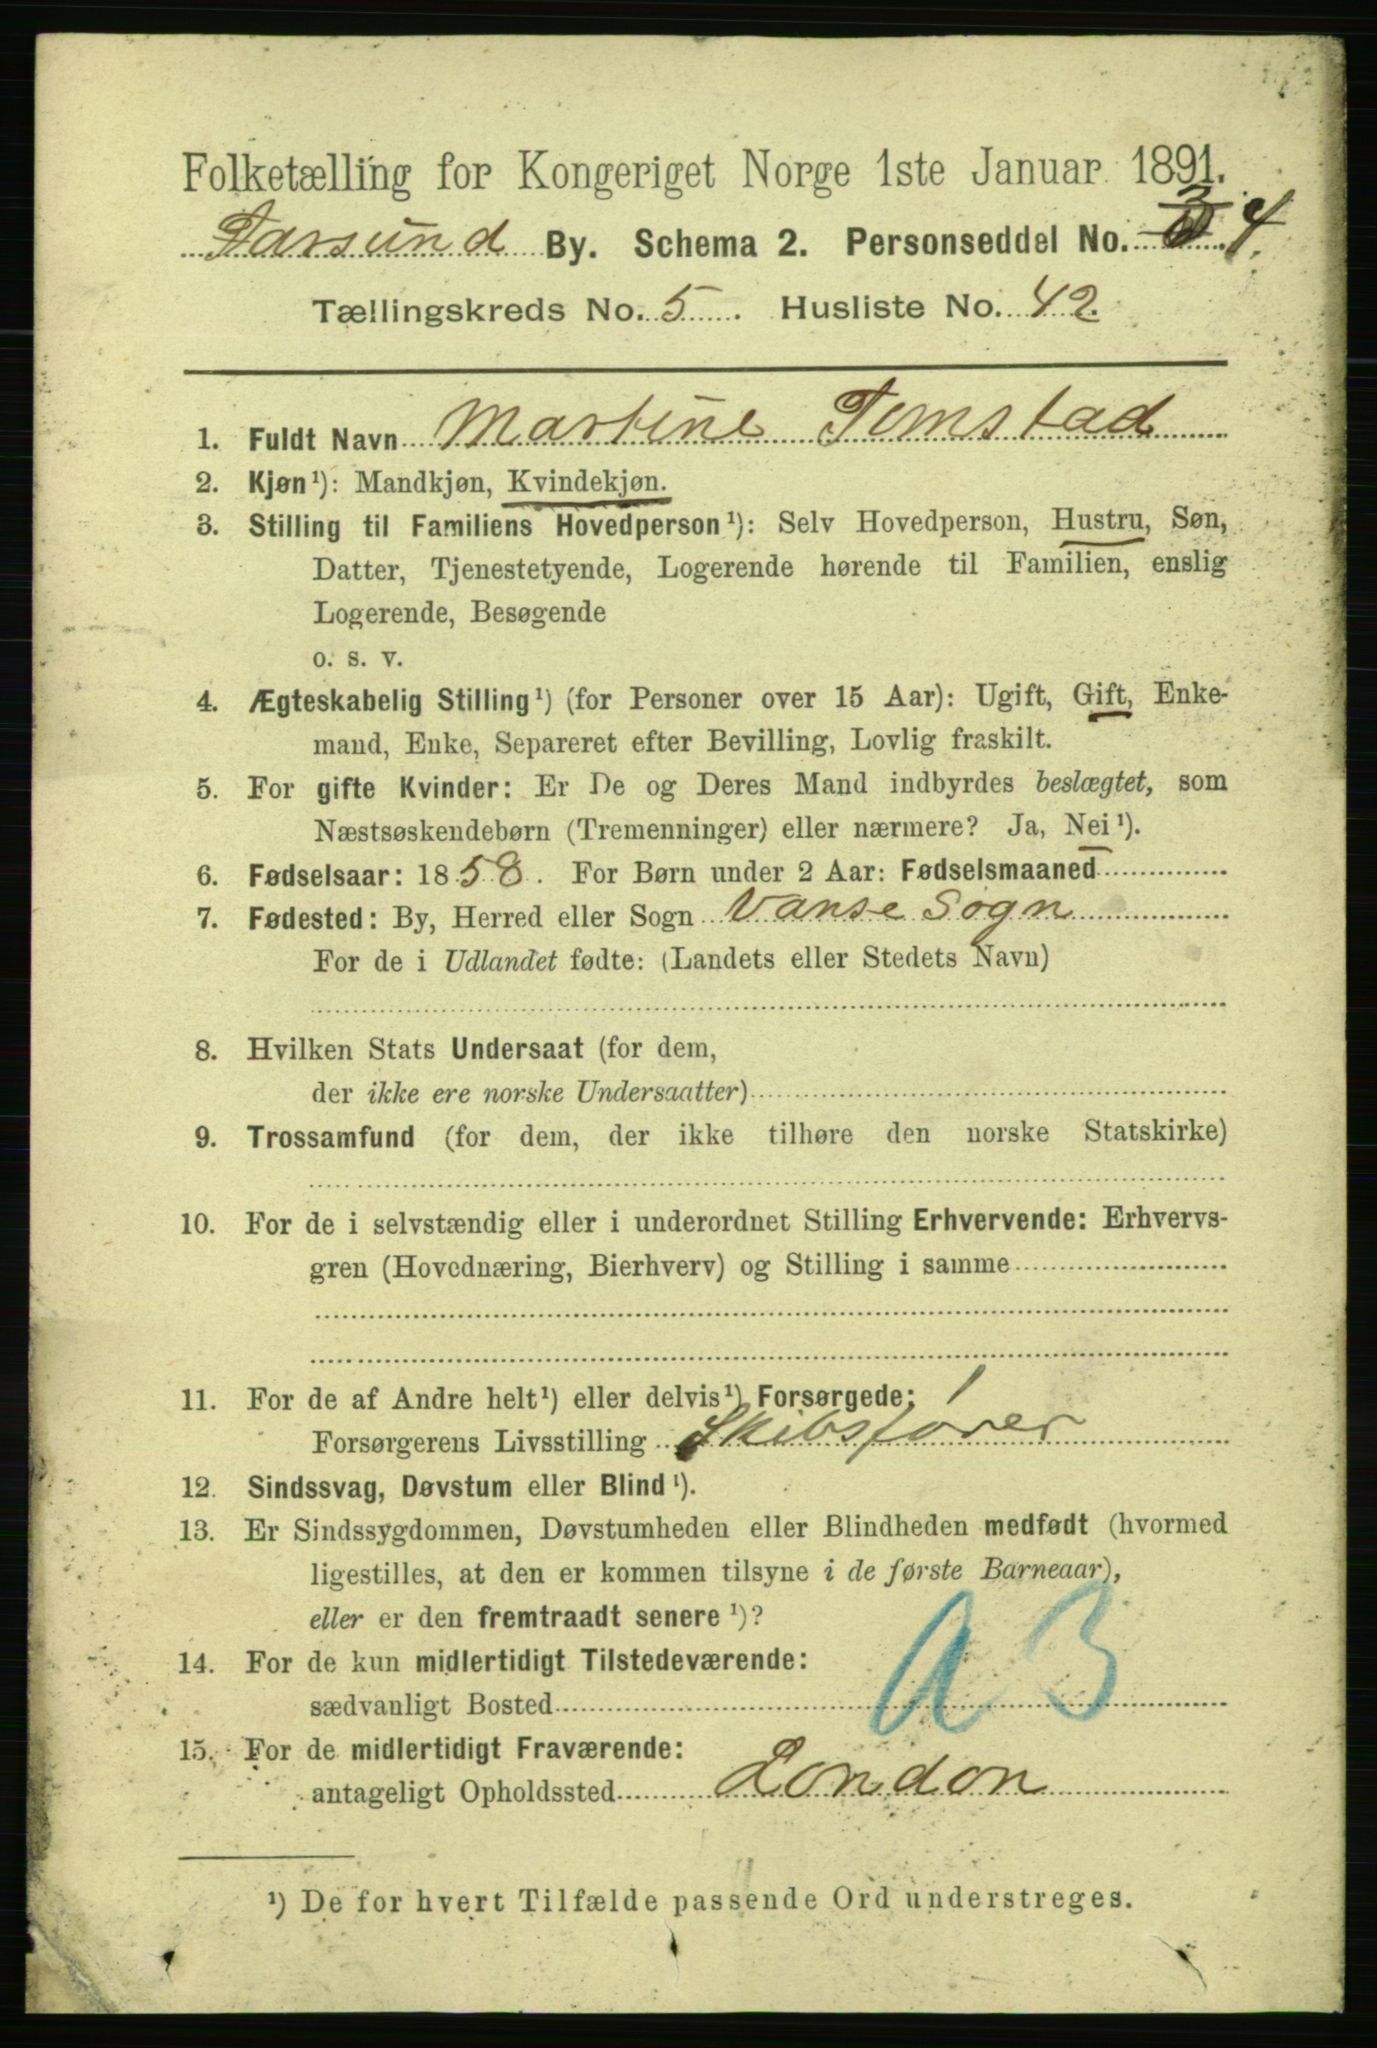 Folketælling for Kongeriget Norge 1ste Januar 1891.
Farsund By. Schema 2. Personseddel No. 3 4.
Tællingskreds No. 5. Husliste No. 42.
1. Fuldt Navn Martine Tomstad
2. Kjøn¹): Mandkjøn, Kvindekjøn.
3. Stilling til Familiens Hovedperson¹): Selv Hovedperson, Hustru, Søn,
Datter, Tjenestetyende, Logerende hørende til Familien, enslig
Logerende, Besøgende
o. s. v.
4. Ægteskabelig Stilling¹) (for Personer over 15 Aar): Ugift, Gift, Enke-
mand, Enke, Separeret efter Bevilling, Lovlig fraskilt.
5. For gifte Kvinder: Er De og Deres Mand indbyrdes beslægtet, som
Næstsøskendebørn (Tremenninger) eller nærmere? Ja, Nei¹).
6. Fødselsaar: 1858. For Børn under 2 Aar: Fødselsmaaned
7. Fødested: By, Herred eller Sogn Vanse Sogn
For de i Udlandet fødte: (Landets eller Stedets Navn)
8. Hvilken Stats Undersaat (for dem,
der ikke ere norske Undersaatter)
9. Trossamfund (for dem, der ikke tilhøre den norske Statskirke)
10. For de i selvstændig eller i underordnet Stilling Erhvervende: Erhvervs-
gren (Hovednæring, Bierhverv) og Stilling i samme
11. For de af Andre helt¹) eller delvis¹) Forsørgede:
Forsørgerens Livsstilling Skibsfører
12. Sindssvag, Døvstum eller Blind¹).
13. Er Sindssygdommen, Døvstumheden eller Blindheden medfødt (hvormed
ligestilles, at den er kommen tilsyne i de første Barneaar),
eller er den fremtraadt senere¹)?
14. For de kun midlertidigt Tilstedeværende:
sædvanligt Bosted
a 3
15. For de midlertidigt Fraværende:
antageligt Opholdssted London
¹) De for hvert Tilfælde passende Ord understreges.